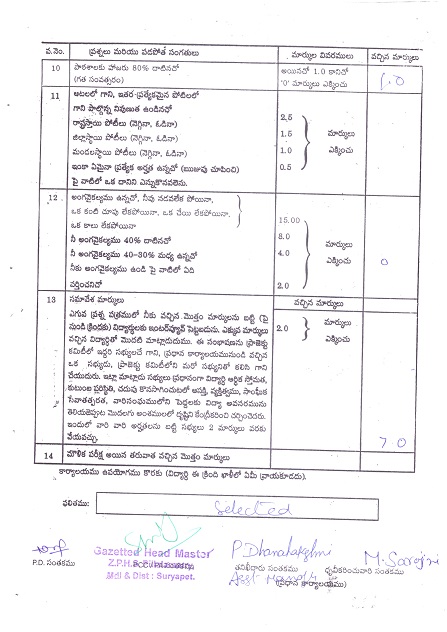 వ.నెం. ప్రశ్నలు మరియు పడపోత సంగతులు మార్కుల వివరములు వచ్చిన మార్కులు
10 పాఠశాలకు హాజరు 80% దాటినచో అయినచో 1.0 కానిచో 1.0
(గత సంవత్సరం) '0' మార్కులు ఎక్కించు
11 ఆటలలో గాని, ఇతర ప్రత్యేకమైన పోటీలలో
గాని పాల్గొన్న నిపుణుత ఉండినచో
రాష్ట్రస్థాయి పోటీలు (నెగ్గినా, ఓడినా) 2.5
జిల్లాస్థాయి పోటీలు (నెగ్గినా, ఓడినా) 1.5 మార్కులు
మండలస్థాయి పోటీలు (నెగ్గినా, ఓడినా) 1.0 ఎక్కించు
ఇంకా ఏమైనా ప్రత్యేక అర్హత ఉన్నచో (ఋజువు చూపించి) 0.5
పై వాటిలో ఒక దానిని ఎన్నుకొనవలెను.
12 అంగవైకల్యము ఉన్నచో, నీవు నడవలేక పోయినా,
ఒక కంటి చూపు లేకపోయినా, ఒక చేయి లేకపోయినా, 15.00
ఒక కాలు లేకపోయినా
నీ అంగవైకల్యము 40% దాటినచో 8.0 మార్కులు
నీ అంగవైకల్యము 40-30% మధ్య ఉన్నచో 4.0 ఎక్కించు 0
నీకు అంగవైకల్యము ఉండి పై వాటిలో ఏది
వర్తించనిచో 2.0
13 సమావేశ మార్కులు వచ్చిన మార్కులు
ఎగువ ప్రశ్న పత్రములో నీకు వచ్చిన మొత్తం మార్కులను బట్టి (పై
నుండి క్రిందకు) విద్యార్థులకు ఇంటర్వ్యూవ్ పెట్టబడును. ఎక్కువ మార్కులు 2.0 మార్కులు
వచ్చిన విద్యార్థితో మొదటి మాట్లాడుదుము. ఈ సంభాషణను ప్రాజెక్టు ఎక్కించు
కమిటీలో ఇద్దరి సభ్యులచే గాని, ప్రధాన కార్యాలయమునుండి వచ్చిన
ఒక సభ్యుడు, ప్రాజెక్టు కమిటీలోని మరో సభ్యునితో కలిసి గాని
చేయుదురు. ఇట్లా మాట్లాడు సభ్యులు ప్రధానంగా విద్యార్థి ఆర్థిక స్తోమత,
కుటుంబ పరిస్థితి, చదువు కొనసాగించుటలో ఆసక్తి, వ్యక్తిత్వము, సాంఘిక
సేవాతత్పరత, వారిసంఘములోని పెద్దలకు విద్యా అవసరమును
తెలియజెప్పుట మొదలగు అంశములలో దృష్టిని కేంద్రీకరించి చర్చించెదరు.
ఇందులో వారి వారి అర్హతలను బట్టి సభ్యులు 2 మార్కులు వరకు
వేయవచ్చు. 7.0
14 మౌళిక పరీక్ష అయిన తరువాత వచ్చిన మొత్తం మార్కులు
కార్యాలయము ఉపయోగము కొరకు (విద్యార్థి ఈ క్రింది ఖాళీలో ఏమీ వ్రాయకూడదు).
ఫలితము: Selected
P. Dhanalakshmi
Gazetted Head Master M. Sarojini
P.D. సంతకము Z.P.H.S. తనిఖీదారు సంతకము ధృవీకరించువారి సంతకము
Mdl & Dist : Suryapet. (ప్రధాన కార్యాలయము)